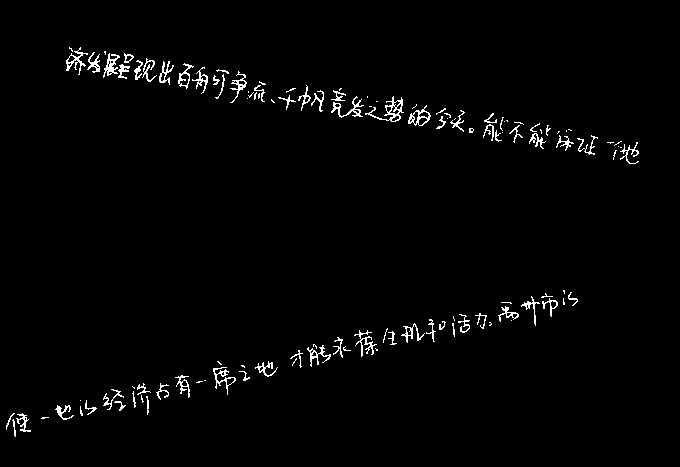 济发展呈现出百舸争流、千帆竞发之势的今天。能不能保证一地
使一地的经济占有一席之地 才能永葆生机和活力,禹州市的